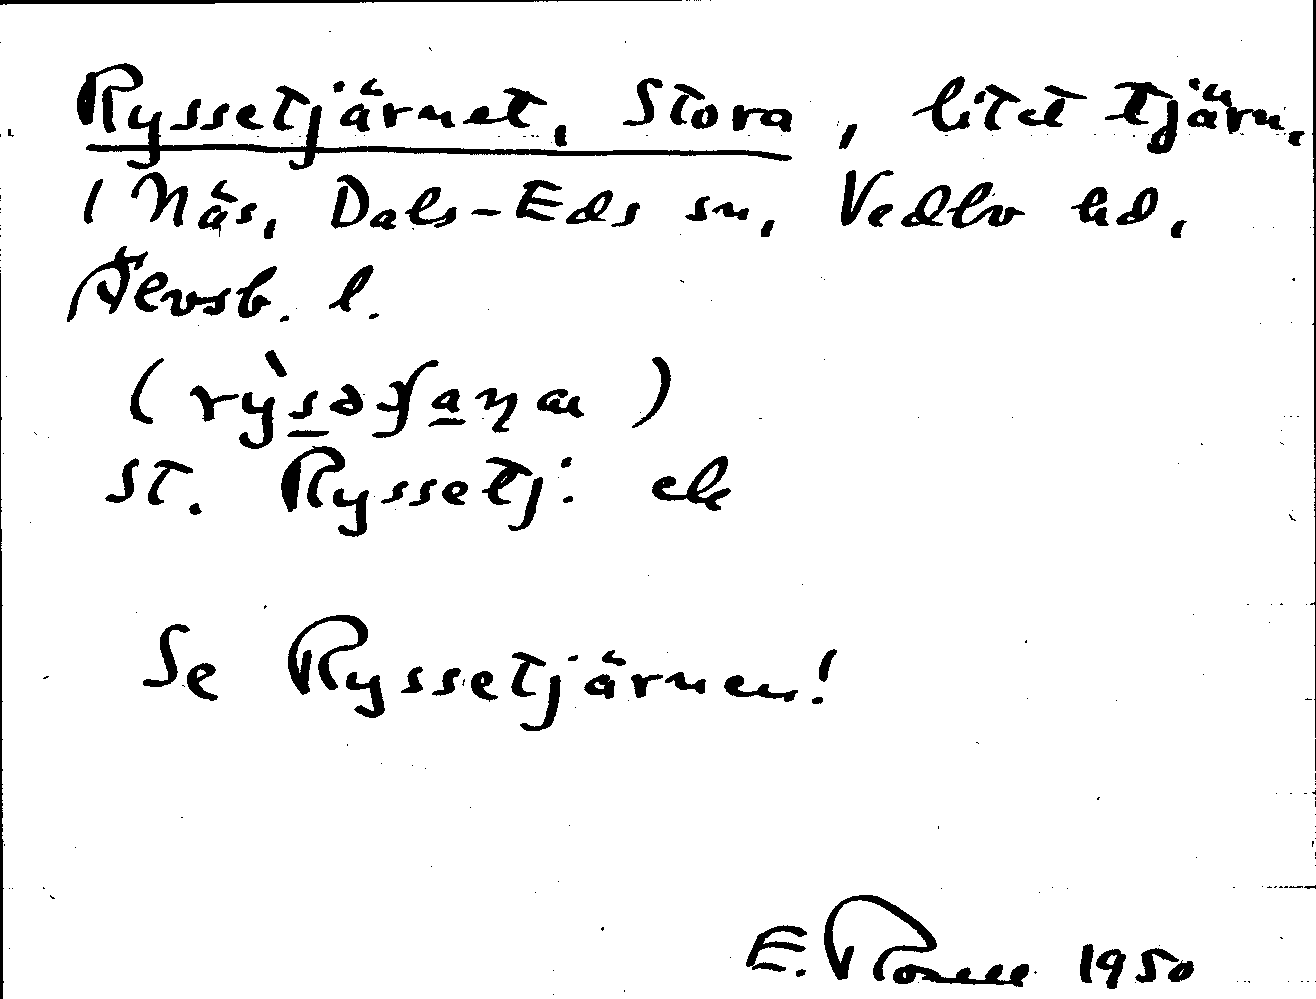 Ryssetjärnet, Stora, litet tjärn,
i Näs, Dals-Eds sn, Vedbo hd,
Älvsb. l.
st. Ryssetj: ek
Se Ryssetjärnen!
E. 1950